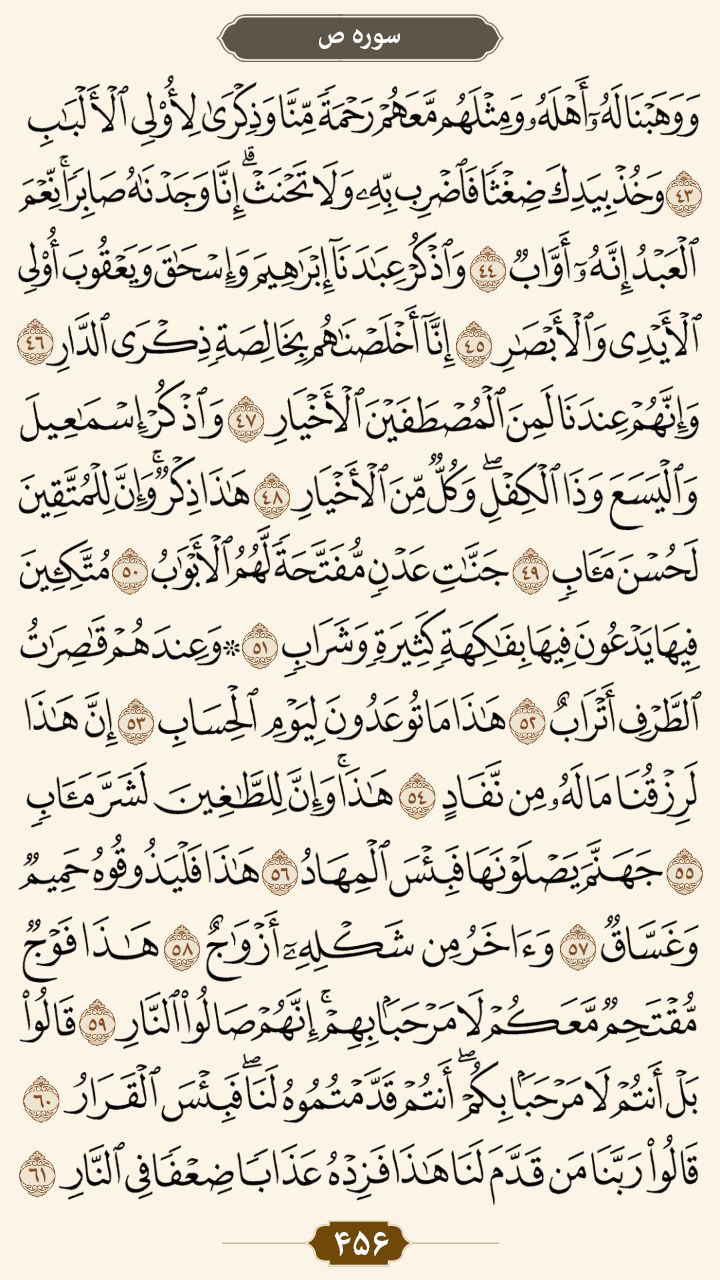 سوره ص
وَوَهَبْنَا لَهُۥٓ أَهْلَهُۥ وَمِثْلَهُم مَّعَهُمْ رَحْمَةً مِّنَّا وَذِكْرَىٰ لِأُو۟لِى ٱلْأَلْبَـٰبِ
﴿٤٣﴾ وَخُذْ بِيَدِكَ ضِغْثًا فَٱضْرِب بِّهِۦ وَلَا تَحْنَثْ ۗ إِنَّا وَجَدْنَـٰهُ صَابِرًا ۚ نِّعْمَ
ٱلْعَبْدُ إِنَّهُۥٓ أَوَّابٌ ﴿٤٤﴾ وَٱذْكُرْ عِبَـٰدَنَآ إِبْرَٰهِيمَ وَإِسْحَـٰقَ وَيَعْقُوبَ أُو۟لِى
ٱلْأَيْدِى وَٱلْأَبْصَـٰرِ ﴿٤٥﴾ إِنَّآ أَخْلَصْنَـٰهُم بِخَالِصَةٍ ذِكْرَى ٱلدَّارِ ﴿٤٦﴾
وَإِنَّهُمْ عِندَنَا لَمِنَ ٱلْمُصْطَفَيْنَ ٱلْأَخْيَارِ ﴿٤٧﴾ وَٱذْكُرْ إِسْمَـٰعِيلَ
وَٱلْيَسَعَ وَذَا ٱلْكِفْلِ ۖ وَكُلٌّ مِّنَ ٱلْأَخْيَارِ ﴿٤٨﴾ هَـٰذَا ذِكْرٌ ۚ وَإِنَّ لِلْمُتَّقِينَ
لَحُسْنَ مَـَٔابٍ ﴿٤٩﴾ جَنَّـٰتِ عَدْنٍ مُّفَتَّحَةً لَّهُمُ ٱلْأَبْوَٰبُ ﴿٥٠﴾ مُتَّكِـِٔينَ
فِيهَا يَدْعُونَ فِيهَا بِفَـٰكِهَةٍ كَثِيرَةٍ وَشَرَابٍ ﴿٥١﴾ * وَعِندَهُمْ قَـٰصِرَٰتُ
ٱلطَّرْفِ أَتْرَابٌ ﴿٥٢﴾ هَـٰذَا مَا تُوعَدُونَ لِيَوْمِ ٱلْحِسَابِ ﴿٥٣﴾ إِنَّ هَـٰذَا
لَرِزْقُنَا مَا لَهُۥ مِن نَّفَادٍ ﴿٥٤﴾ هَـٰذَا ۚ وَإِنَّ لِلطَّـٰغِينَ لَشَرَّ مَـَٔابٍ
﴿٥٥﴾ جَهَنَّمَ يَصْلَوْنَهَا فَبِئْسَ ٱلْمِهَادُ ﴿٥٦﴾ هَـٰذَا فَلْيَذُوقُوهُ حَمِيمٌ
وَغَسَّاقٌ ﴿٥٧﴾ وَءَاخَرُ مِن شَكْلِهِۦٓ أَزْوَٰجٌ ﴿٥٨﴾ هَـٰذَا فَوْجٌ
مُّقْتَحِمٌ مَّعَكُمْ لَا مَرْحَبًۢا بِهِمْ ۚ إِنَّهُمْ صَالُوا۟ ٱلنَّارِ ﴿٥٩﴾ قَالُوا۟
بَلْ أَنتُمْ لَا مَرْحَبًۢا بِكُمْ ۖ أَنتُمْ قَدَّمْتُمُوهُ لَنَا ۖ فَبِئْسَ ٱلْقَرَارُ ﴿٦٠﴾
قَالُوا۟ رَبَّنَا مَن قَدَّمَ لَنَا هَـٰذَا فَزِدْهُ عَذَابًا ضِعْفًا فِى ٱلنَّارِ ﴿٦١﴾
۴۵۶